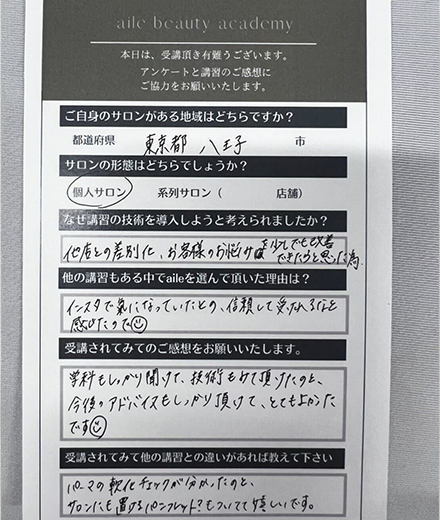 aile beauty academy
本日は、受講頂き有難うございます。
アンケートと講習のご感想に
ご協力をお願いいたします。
ご自身のサロンがある地域はどちらですか？
都道府県 東京都 八王子 市
サロンの形態はどちらでしょうか？
個人サロン 系列サロン（ 店舗）
なぜ講習の技術を導入しようと考えられましたか？
他店との差別化、お客様のお悩み を少しでも改善
できたらと思った為
他の講習もある中でaileを選んで頂いた理由は？
インスタで気になっていたのと、信頼して受けれるなと
感じたので
受講されてみてのご感想をお願いいたします。
学科もしっかり聞けて、技術もみて頂けたのと、
今後のアドバイスもしっかり頂けて、とてもよかった
です
受講されてみて他の講習との違いがあれば教えて下さい
パーマの軟化チェックが分かったのと、
サロンにも置けるパンフレット？もついてて嬉しいです。